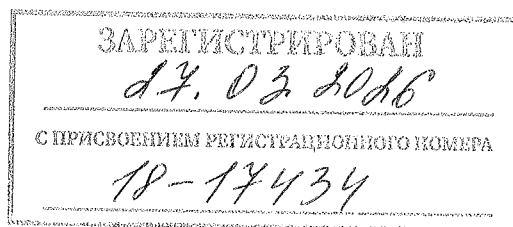 ЗАРЕГИСТРИРОВАН
27. 03 2026
С ПРИСВОЕНИЕМ РЕГИСТРАЦИОННОГО НОМЕРА
18-17434